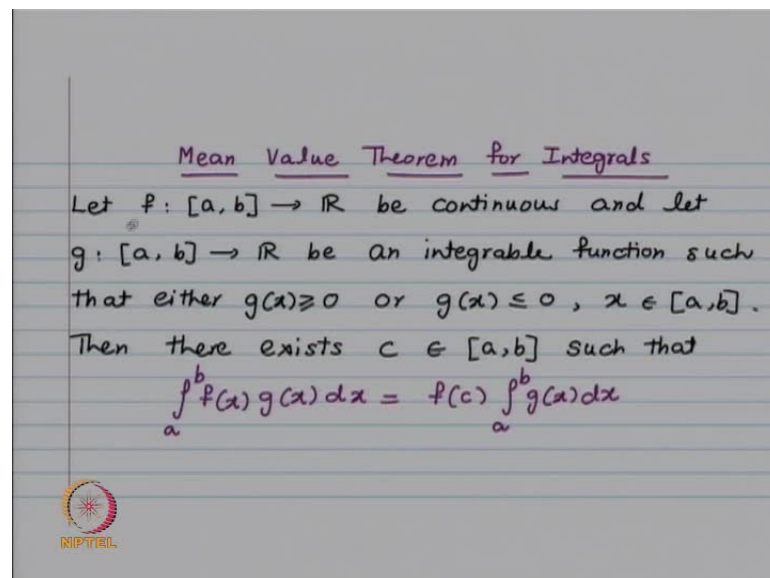 Mean Value Theorem for Integrals
Let f : [a, b] → ℝ be continuous and let
g : [a, b] → ℝ be an integrable function such
that either g(x) ≥ 0 or g(x) ≤ 0, x ∈ [a, b].
Then there exists c ∈ [a, b] such that
∫_a^b f(x) g(x) dx = f(c) ∫_a^b g(x) dx
NPTEL